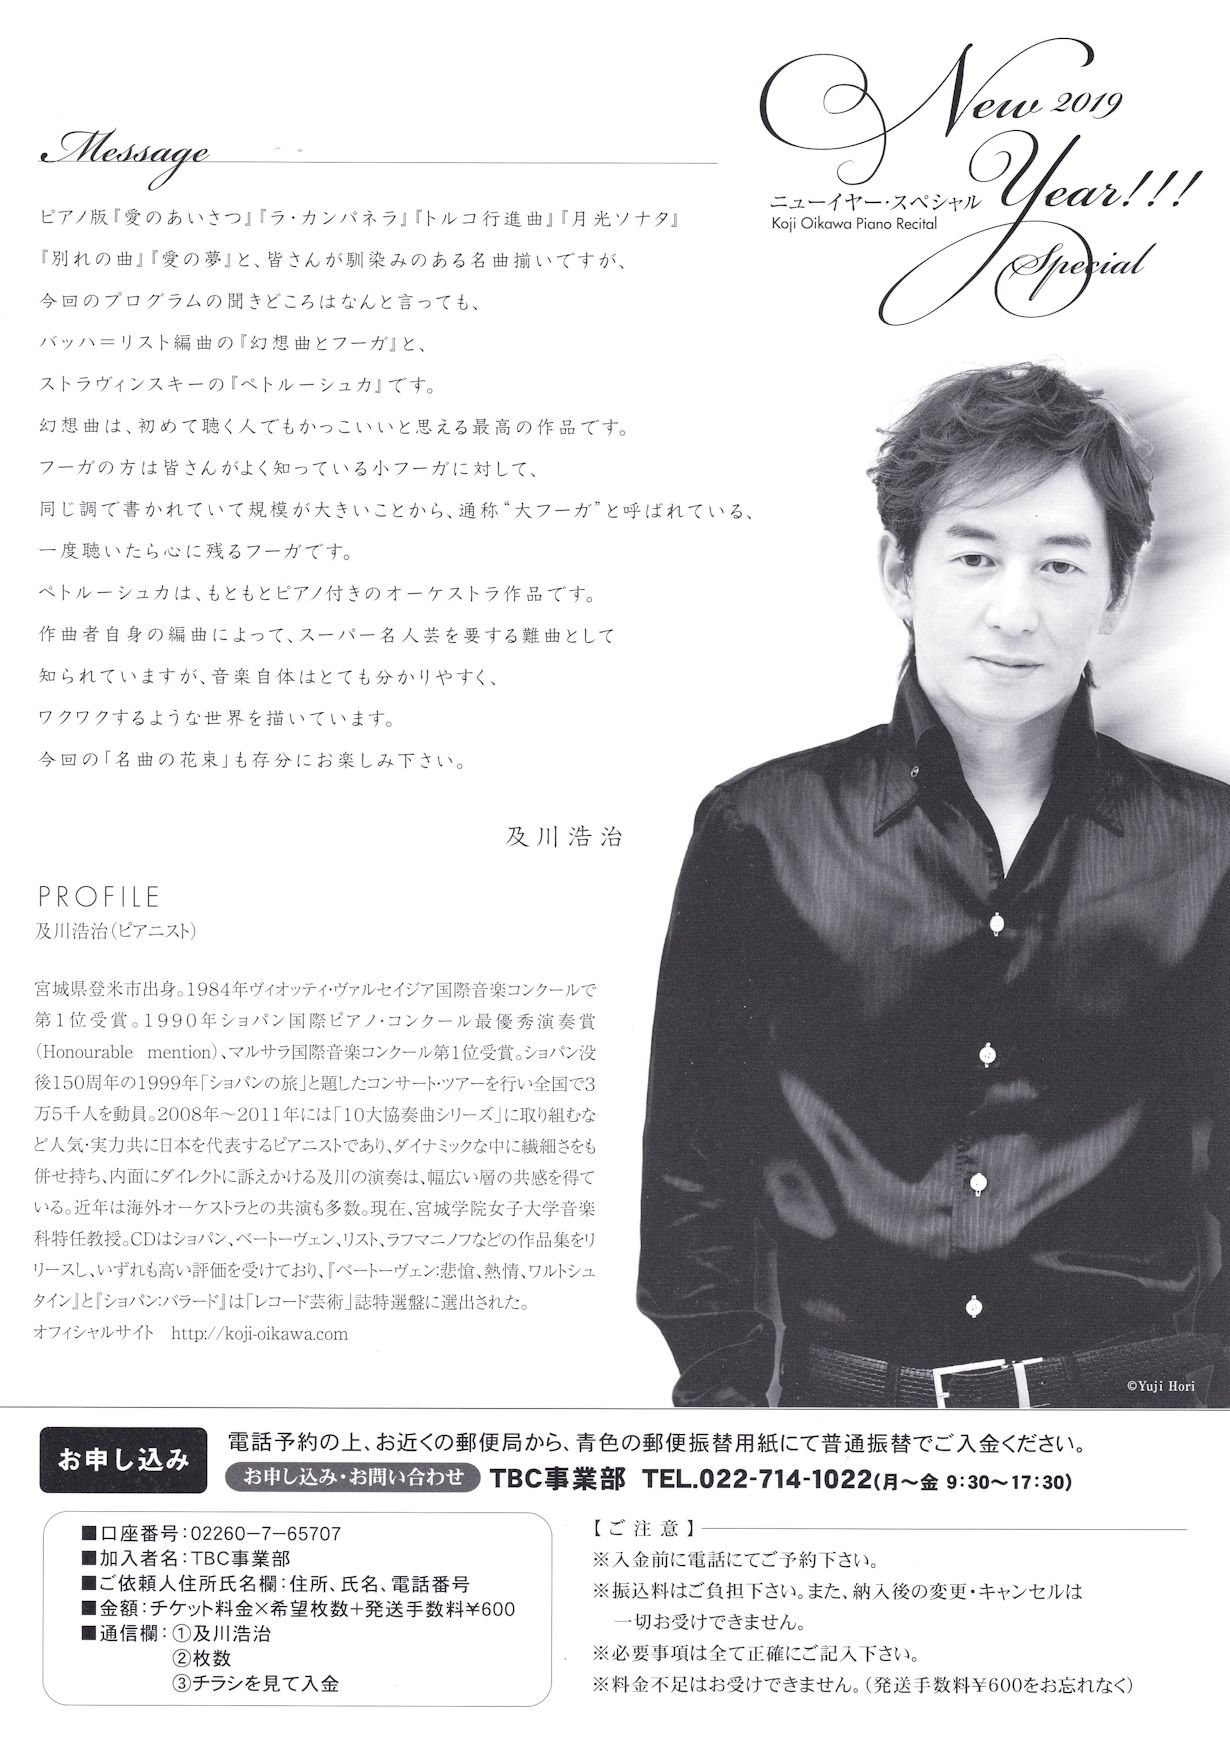 New 2019
Year!!!
Special
ニューイヤー・スペシャル
Koji Oikawa Piano Recital
Message
ピアノ版『愛のあいさつ』『ラ・カンパネラ』『トルコ行進曲』『月光ソナタ』
『別れの曲』『愛の夢』と、皆さんが馴染みのある名曲揃いですが、
今回のプログラムの聞きどころはなんと言っても、
バッハ＝リスト編曲の『幻想曲とフーガ』と、
ストラヴィンスキーの『ペトルーシュカ』です。
幻想曲は、初めて聴く人でもかっこいいと思える最高の作品です。
フーガの方は皆さんがよく知っている小フーガに対して、
同じ調で書かれていて規模が大きいことから、通称“大フーガ”と呼ばれている、
一度聴いたら心に残るフーガです。
ペトルーシュカは、もともとピアノ付きのオーケストラ作品です。
作曲者自身の編曲によって、スーパー名人芸を要する難曲として
知られていますが、音楽自体はとても分かりやすく、
ワクワクするような世界を描いています。
今回の「名曲の花束」も存分にお楽しみ下さい。
及川浩治
PROFILE
及川浩治(ピアニスト)
宮城県登米市出身。1984年ヴィオッティ・ヴァルセイジア国際音楽コンクールで
第1位受賞。1990年ショパン国際ピアノ・コンクール最優秀演奏賞
(Honourable mention)、マルサラ国際音楽コンクール第1位受賞。ショパン没
後150周年の1999年「ショパンの旅」と題したコンサート・ツアーを行い全国で3
万5千人を動員。2008年～2011年には「10大協奏曲シリーズ」に取り組むな
ど人気・実力共に日本を代表するピアニストであり、ダイナミックな中に繊細さをも
併せ持ち、内面にダイレクトに訴えかける及川の演奏は、幅広い層の共感を得て
いる。近年は海外オーケストラとの共演も多数。現在、宮城学院女子大学音楽
科特任教授。CDはショパン、ベートーヴェン、リスト、ラフマニノフなどの作品集をリ
リースし、いずれも高い評価を受けており、『ベートーヴェン:悲愴、熱情、ワルトシュ
タイン』と『ショパン:バラード』は「レコード芸術」誌特選盤に選出された。
オフィシャルサイト http://koji-oikawa.com
©Yuji Hori
お申し込み
電話予約の上、お近くの郵便局から、青色の郵便振替用紙にて普通振替でご入金ください。
お申し込み・お問い合わせ TBC事業部 TEL.022-714-1022(月～金 9:30～17:30)
■口座番号:02260−7−65707
■加入者名:TBC事業部
■ご依頼人住所氏名欄:住所、氏名、電話番号
■金額:チケット料金×希望枚数＋発送手数料¥600
■通信欄:①及川浩治
②枚数
③チラシを見て入金
【ご注意】
※入金前に電話にてご予約下さい。
※振込料はご負担下さい。また、納入後の変更・キャンセルは
一切お受けできません。
※必要事項は全て正確にご記入下さい。
※料金不足はお受けできません。(発送手数料¥600をお忘れなく)